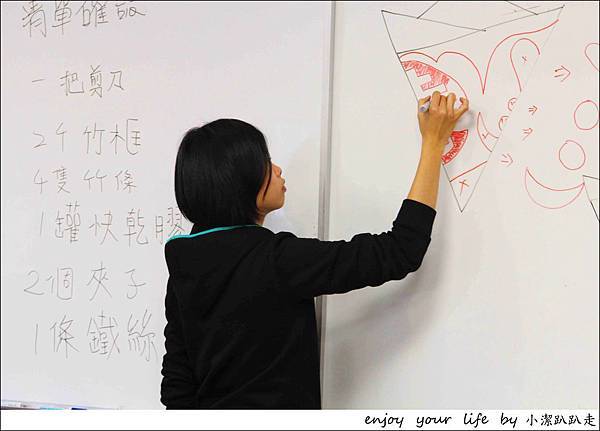 清單確認
一把剪刀
2个竹框
4隻竹條
1罐快乾膠
2個夾子
1條鐵絲
enjoy your life by 小潔趴趴走